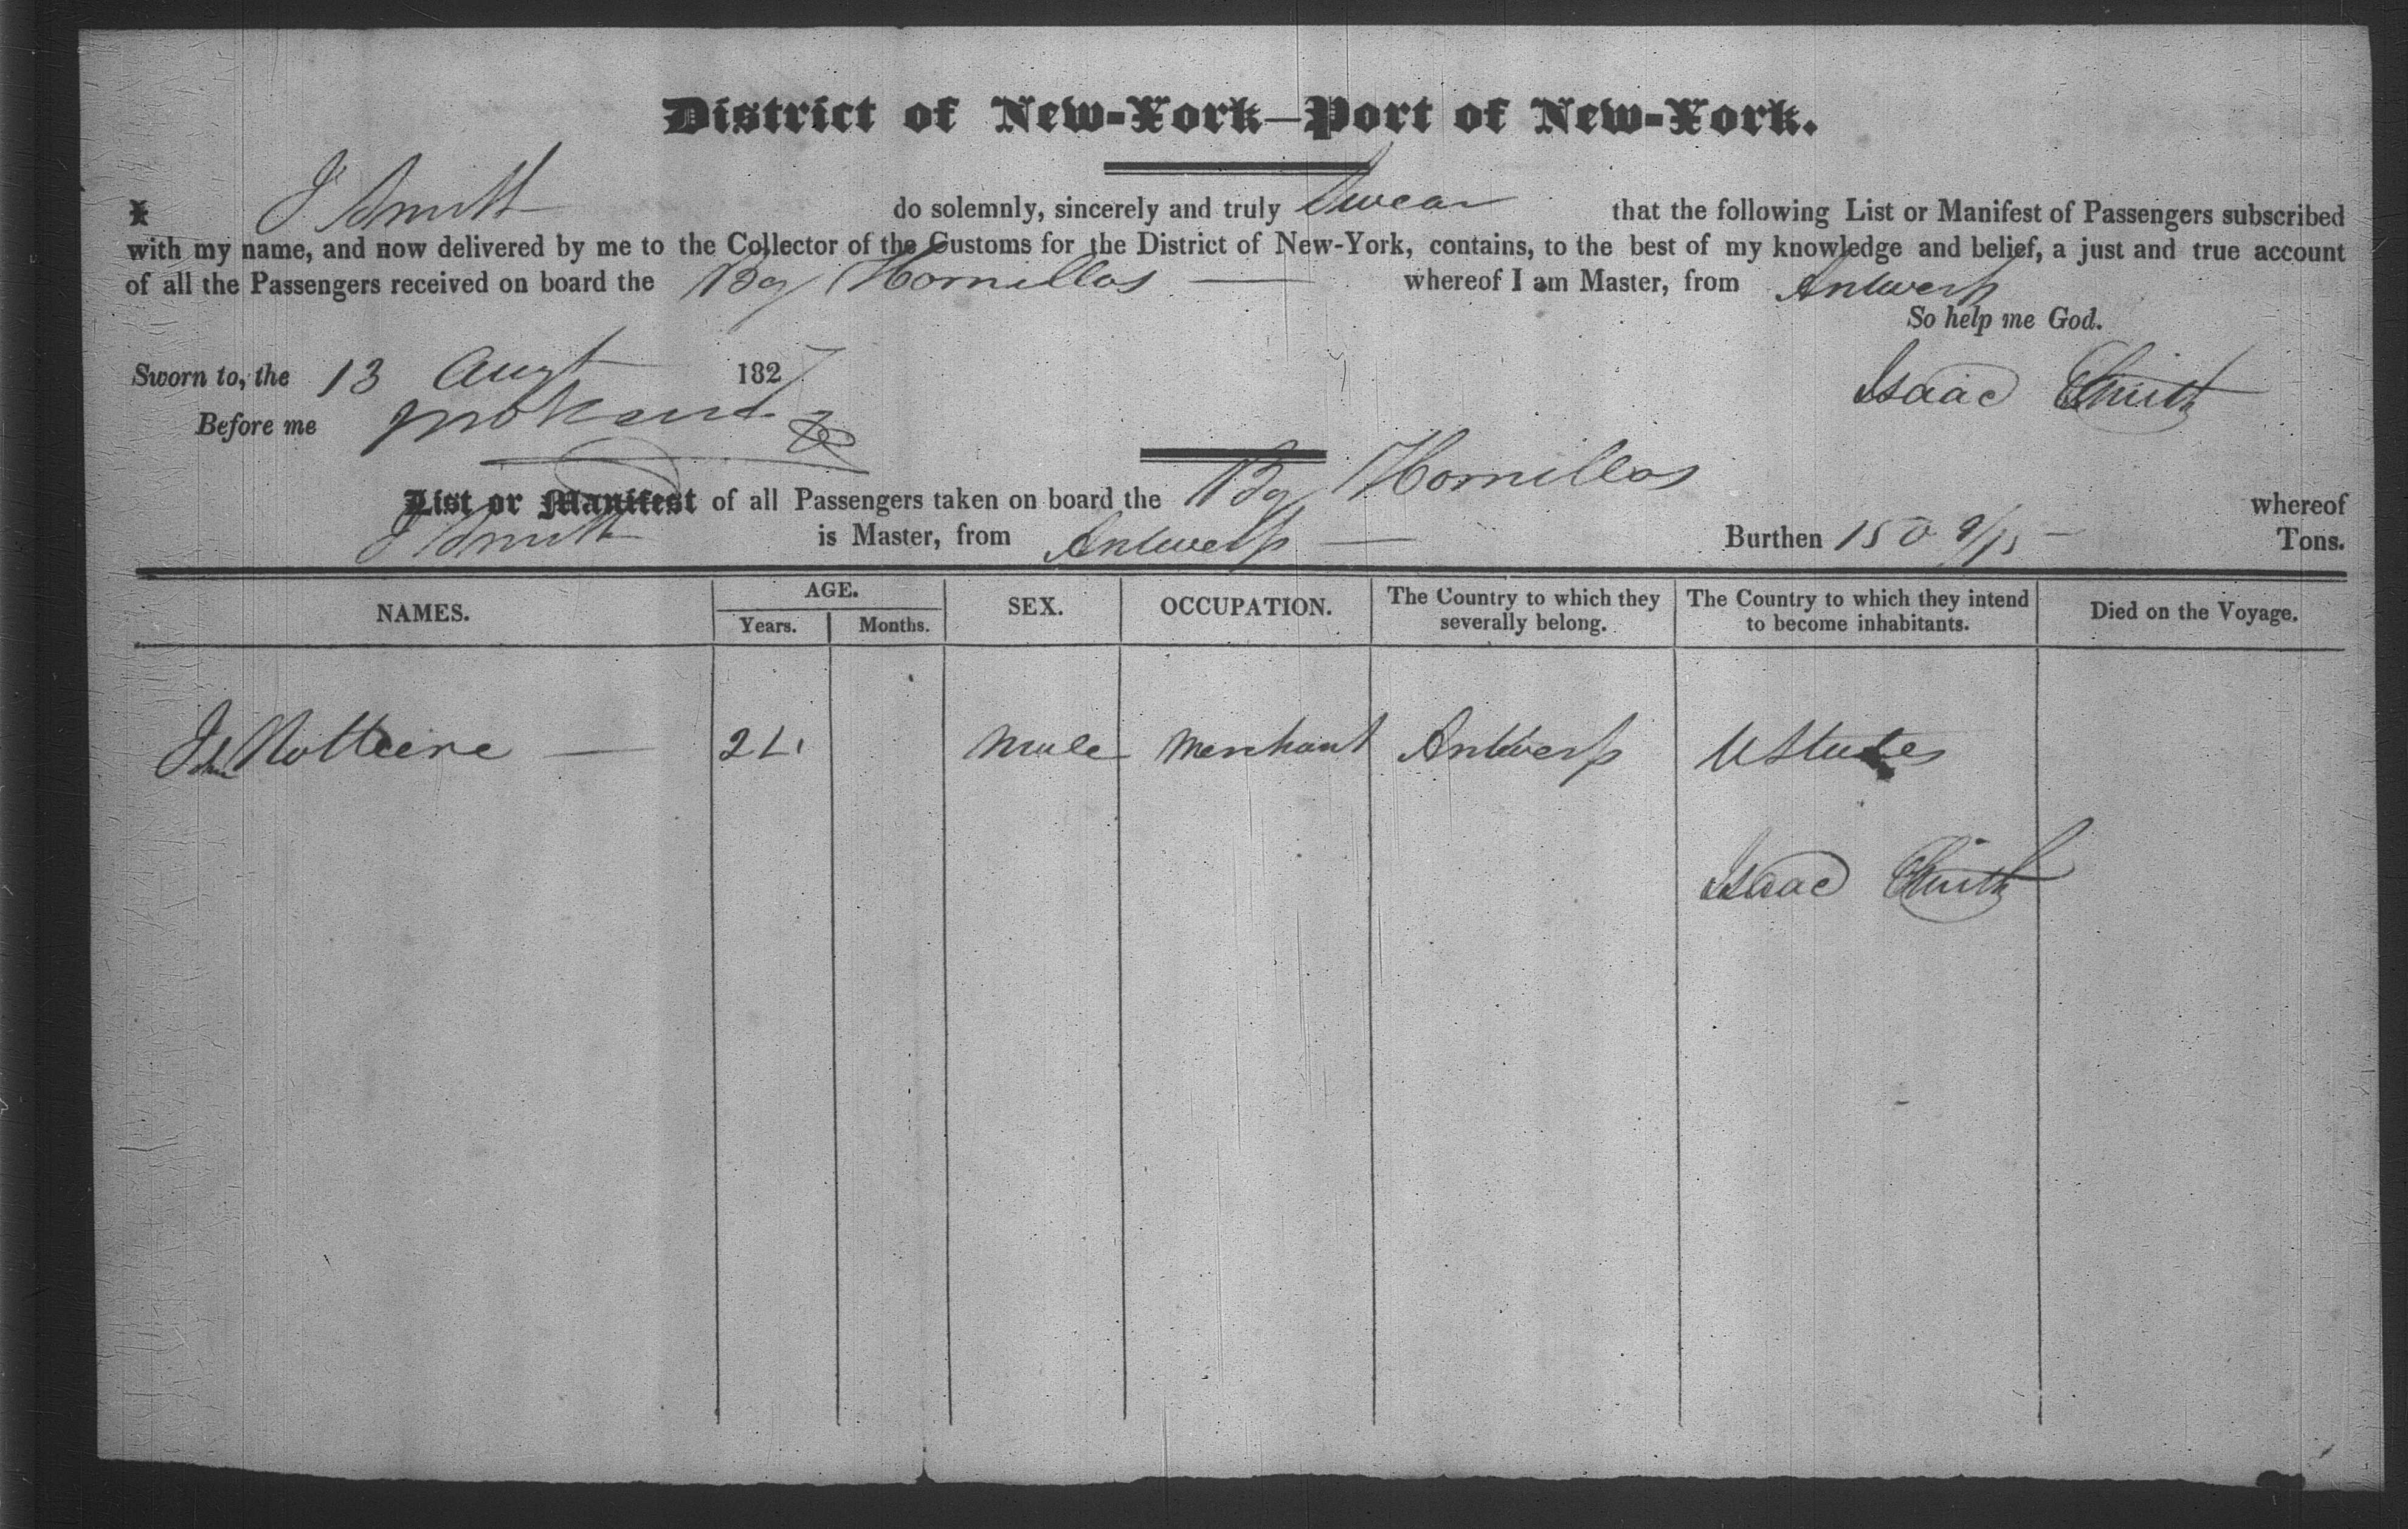 District of New-York—Port of New-York.
I J Smith do solemnly, sincerely and truly Swear that the following List or Manifest of Passengers subscribed
with my name, and now delivered by me to the Collector of the Customs for the District of New-York, contains, to the best of my knowledge and belief, a just and true account
of all the Passengers received on board the Bg Hornillos whereof I am Master, from Antwerp
So help me God.
Sworn to, the 13 Augt 1827
Isaac Smith
Before me
List or Manifest of all Passengers taken on board the Bg Hornillos whereof
J Smith is Master, from Antwerp — Burthen 150 9/15 — Tons.
NAMES. AGE. SEX. OCCUPATION. The Country to which they severally belong. The Country to which they intend to become inhabitants. Died on the Voyage.
Years. Months.
John — Male Merchant Antwerp UStates
Isaac Smith